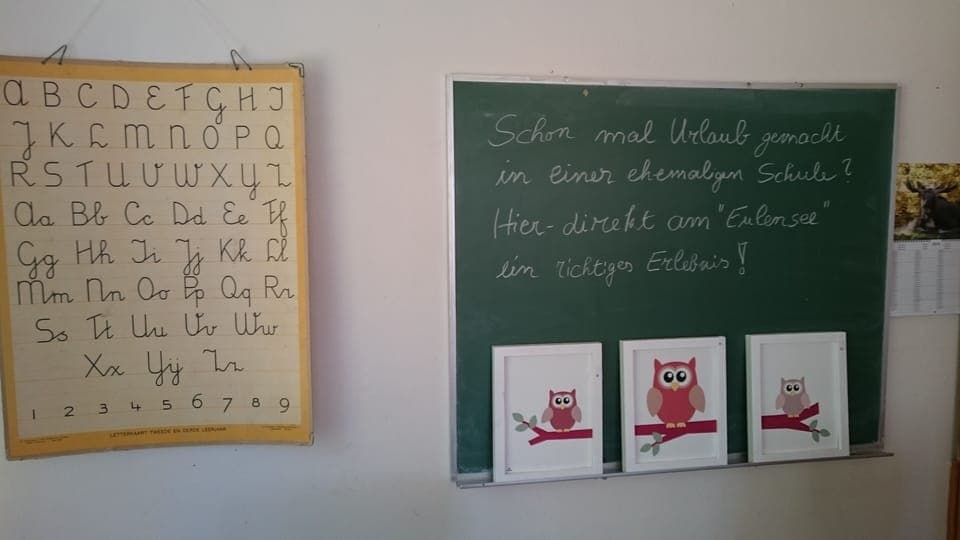 a B C D E F G H I
J K L M N O P Q
R S T U V W X Y Z
Aa Bb Cc Dd Ee Ff
Gg Hh Ii Jj Kk Ll
Mm Nn Oo Pp Qq Rr
Ss Tt Uu Vv Ww
Xx Yy ij Zz
1 2 3 4 5 6 7 8 9
LETTERKAART TWEEDE EN DERDE LEERJAAR
Schon mal Urlaub gemacht
in einer ehemalgen Schule?
Hier - direkt am "Eulensee"
ein richtiges Erlebnis!